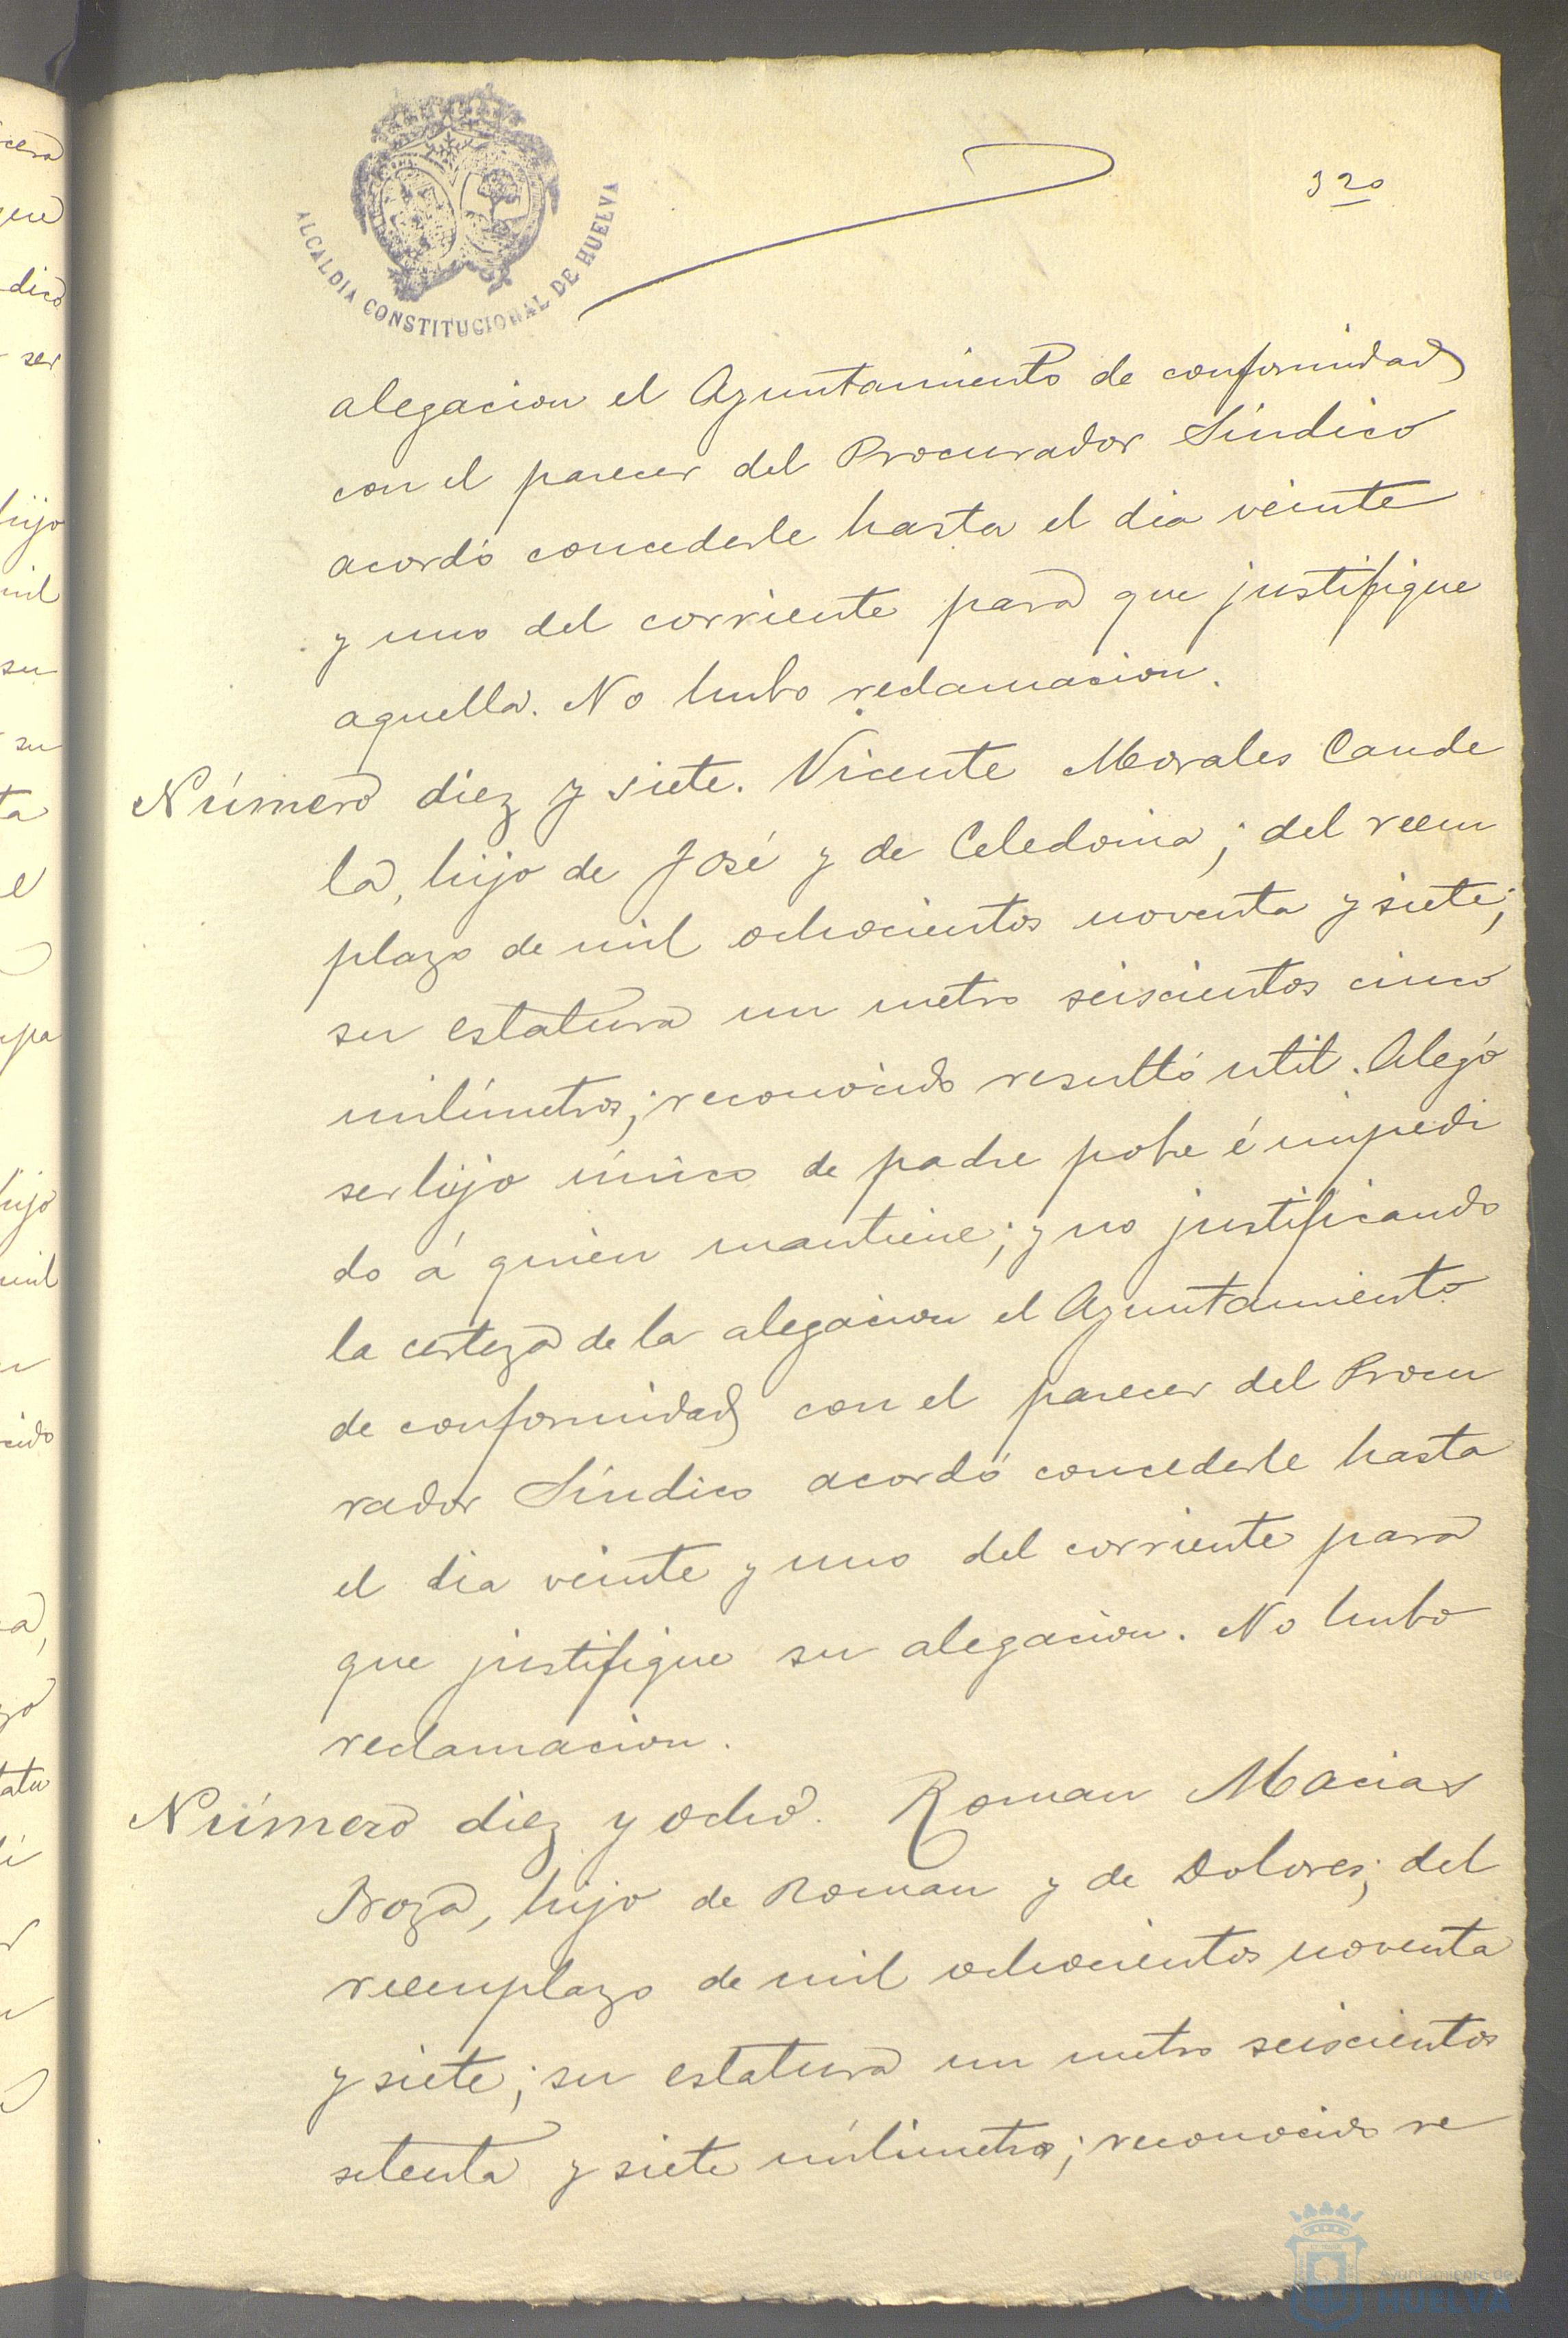 320
ALCALDIA CONSTITUCIONAL DE HUELVA
alegacion el Ayuntamiento de conformidad
con el parecer del Procurador Síndico
acordó concederle hasta el dia veinte
y uno del corriente para que justifique
aquella. No hubo reclamacion.
Número diez y siete. Vicente Morales Cande
la, hijo de José y de Celedonia; del reem
plazo de mil ochocientos noventa y siete;
su estatura un metro seiscientos cinco
milímetros; reconocido resultó util. Alegó
ser hijo único de padre pobre é impedi
do á quien mantiene; y no justificando
la certeza de la alegacion el Ayuntamiento
de conformidad con el parecer del Procu
rador Síndico acordó concederle hasta
el dia veinte y uno del corriente para
que justifique su alegacion. No hubo
reclamacion.
Número diez y ocho. Roman Macias
hijo de Roman y de Dolores; del
reemplazo de mil ochocientos noventa
y siete; su estatura un metro seiscientos
setenta y siete milímetros; reconocido re
Ayuntamiento de
HUELVA